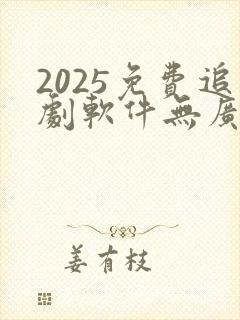 2025免費追
劇軟件無廣
姜有枝